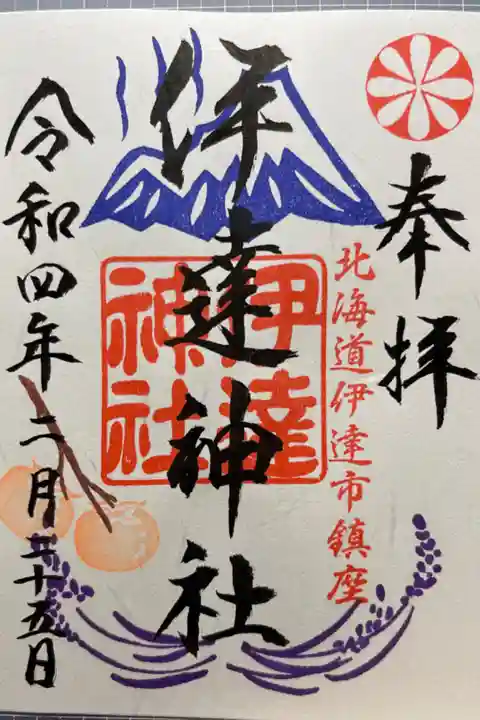 奉拝
北海道伊達市鎮座
伊達神社
伊達
神社
令和四年二月二十五日